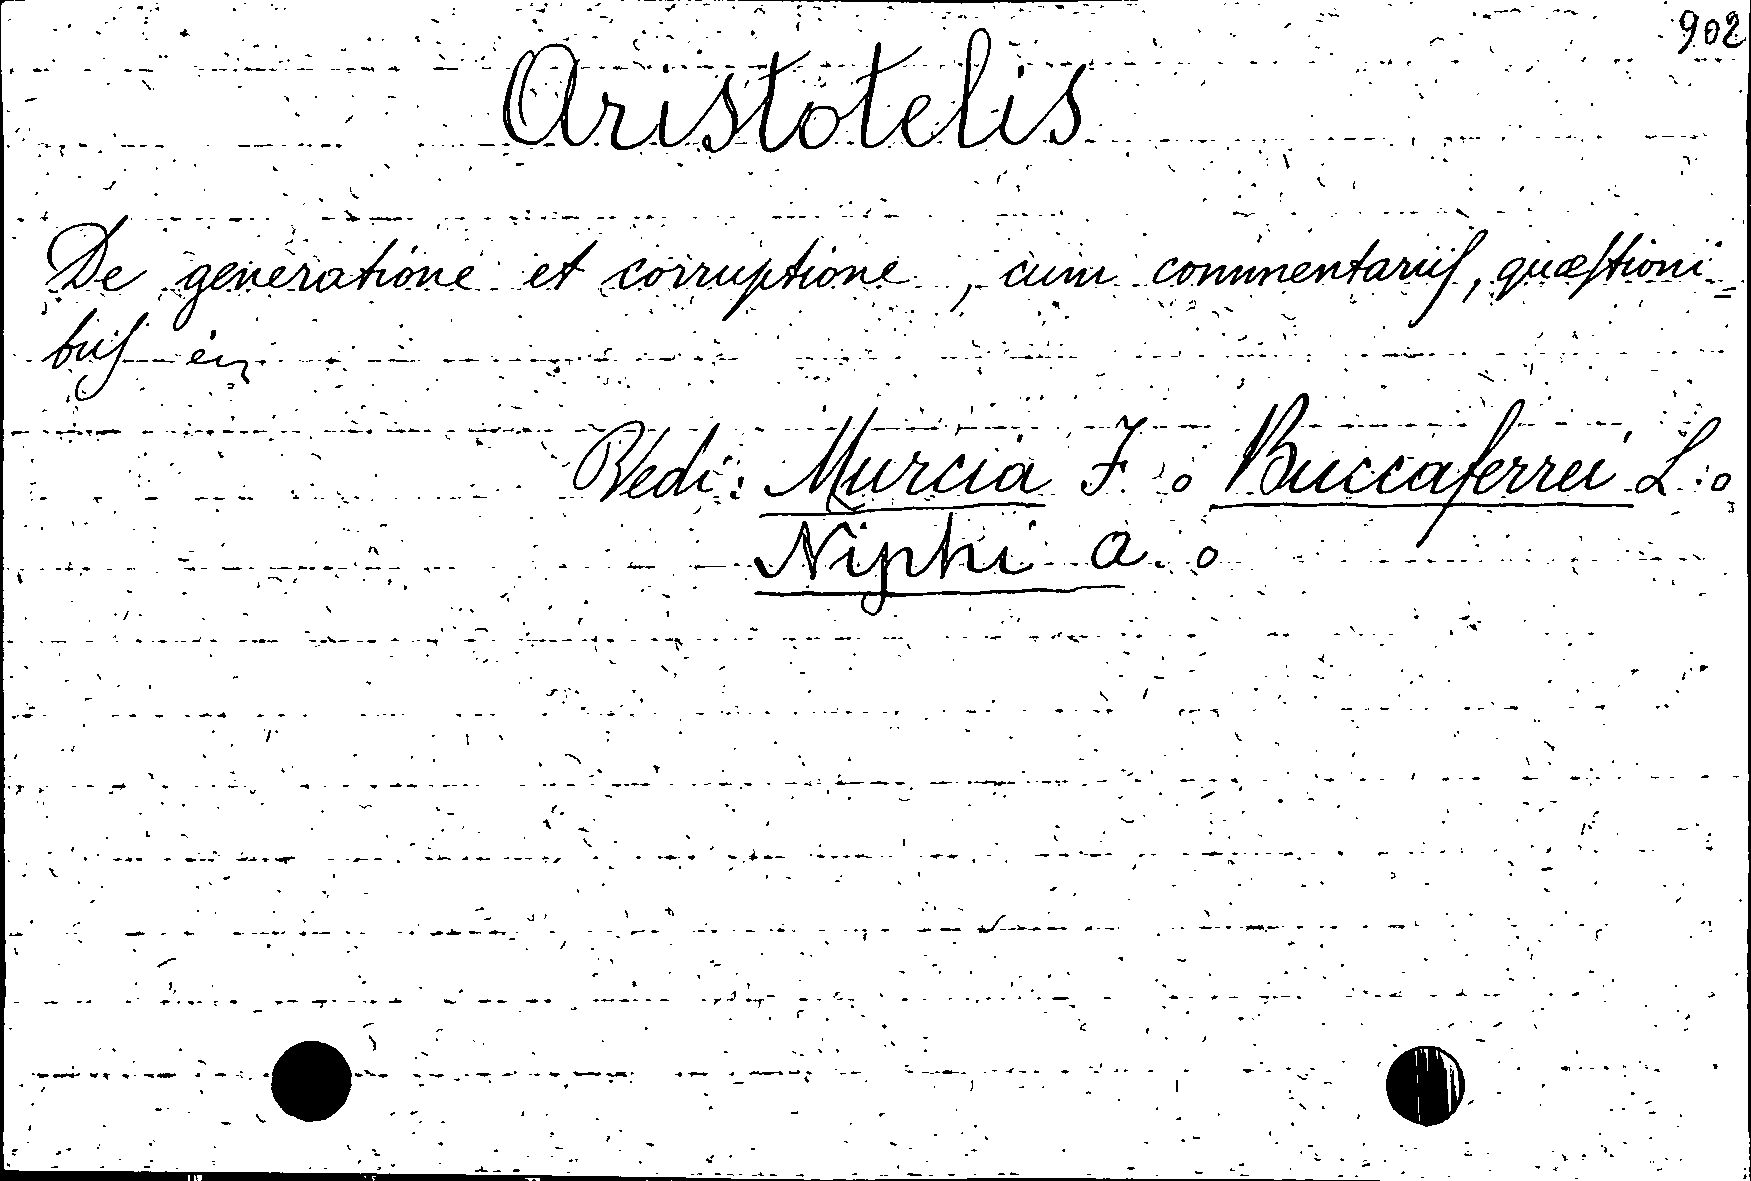 902
Aristotelis
De generatione et corruptione, cum commentariis, quæstioni=
bus
Vedi: Murcia F. o Buccaferrei L: o
Niphi A. o